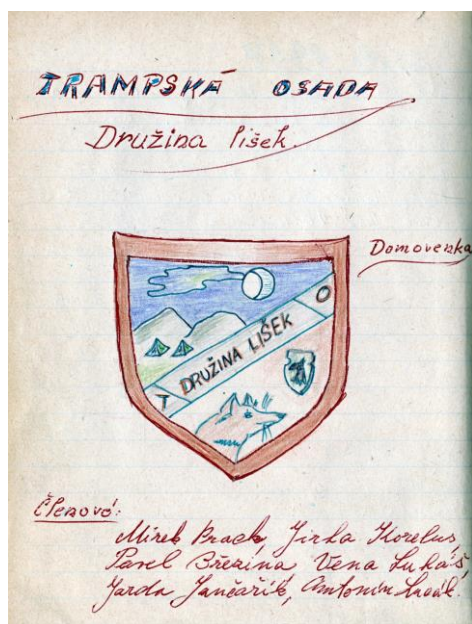 TRAMPSKÁ OSADA
Družina lišek.
Domovenka
T DRUŽINA LIŠEK O
Členové:
Mirek Jirka Korelus,
Pavel Březina, Vena Lukáš,
Jarda Jančařík, Antonín